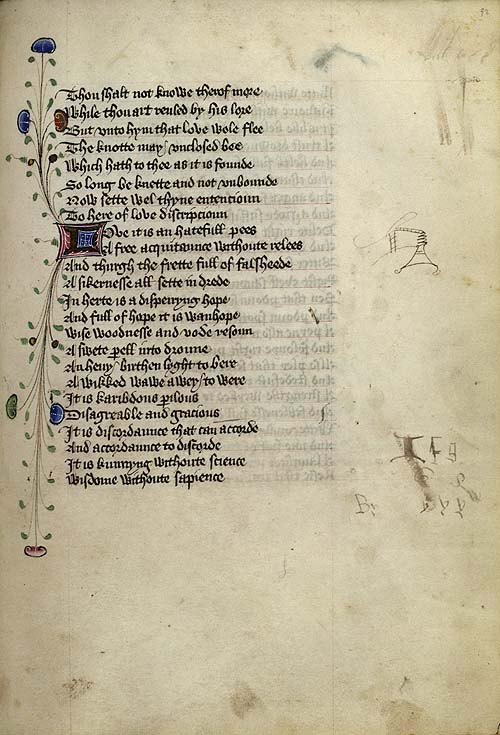 Thou shalt not knowe therof more
While thou art reuled by his lore
But vnto hym that love wole flee
The knotte may vnclosed bee
Which hath to thee as it is founde
So long be knette and not vnbounde
Now sette wel thyne entencioun
To here of love discripcioun
Love it is an hatefull pees
A free acquitaunce withoute relees
And thurgh the frette full of falsheede
A sikernesse all sette in drede
In herte is a dispeiryng hope
And full of hope it is wanhope
Wise woodnesse and vode resoun
A swete pell into droune
An heuy birthen lyght to bere
A wikked wawe awey to were
It is karibdous pilous
Disagreable and gracious
It is discordaunce that can accorde
And accordaunce to discorde
It is kunnyng withoute science
Wisdome withoute sapience
B: